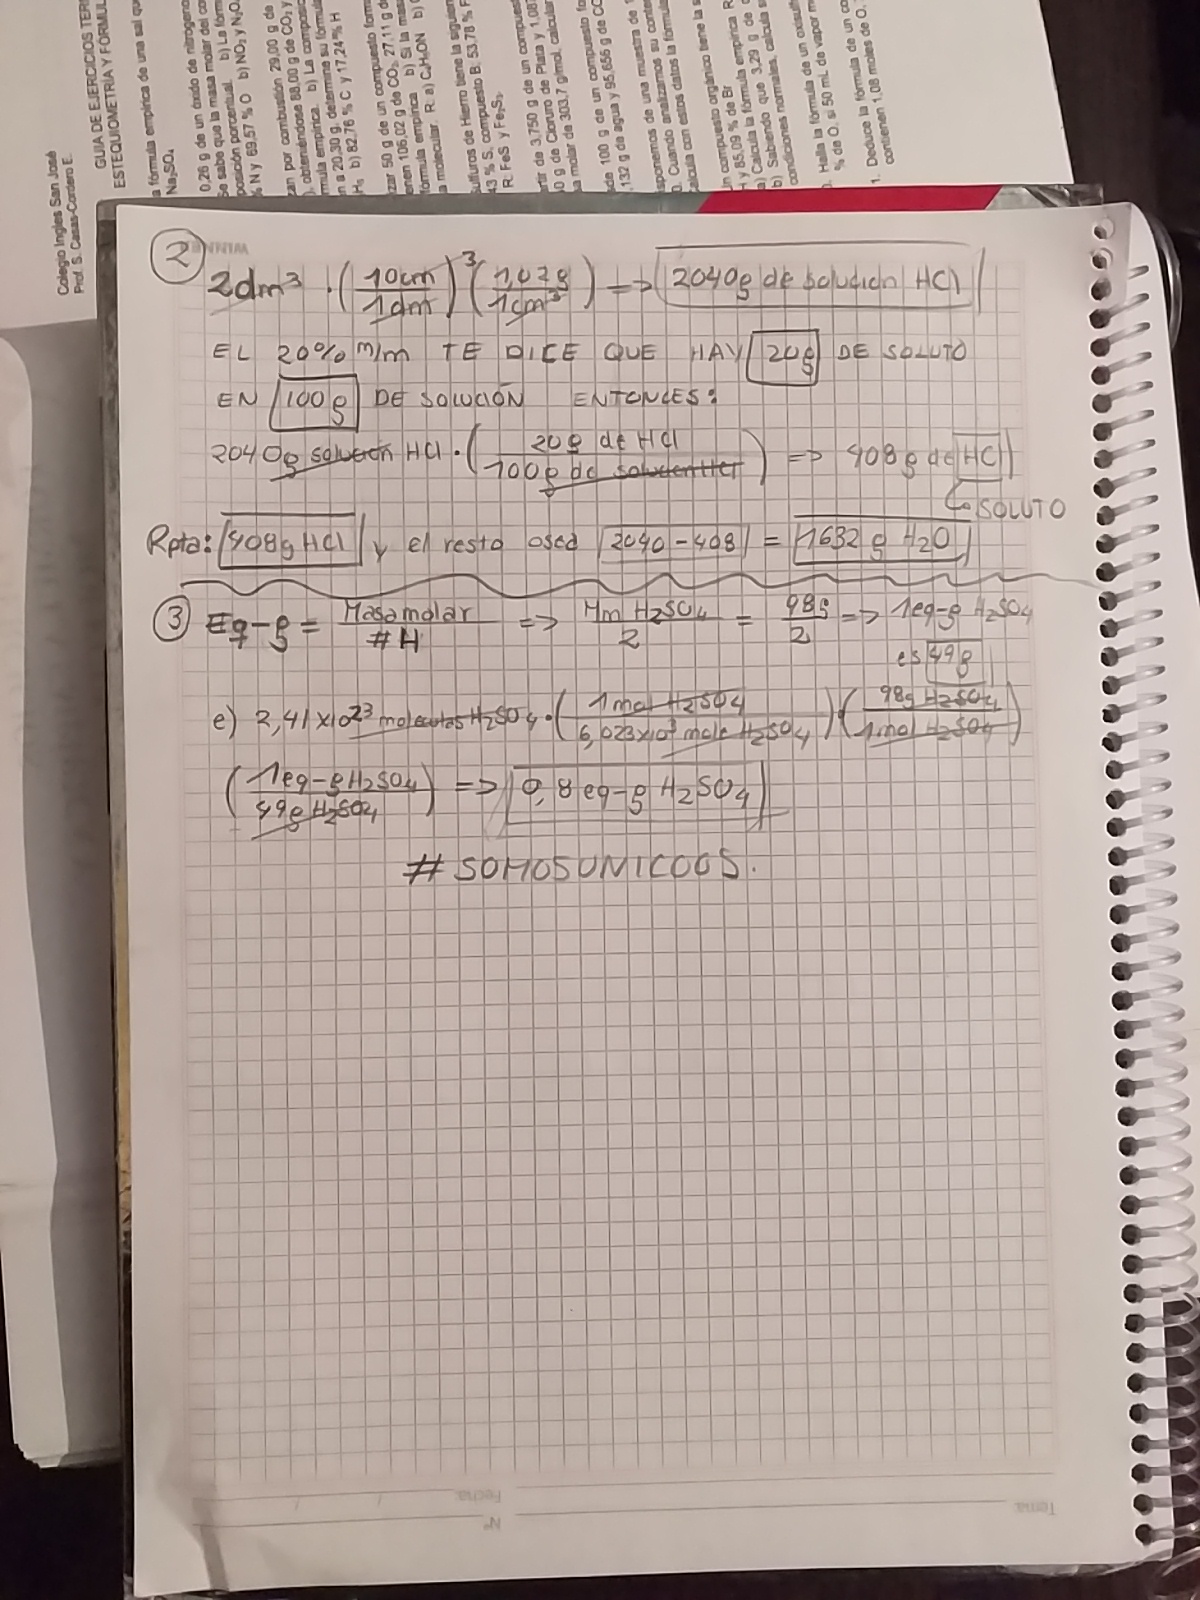 Colegio Ingles San José
Prof. S. Casas-Cordero E.
GUIA DE EJERCICIOS
ESTEQUIOMETRÍA Y
a fórmula empírica de una sal
Na₂SO₄
0,26 g de un óxido de nitrógeno
Se sabe que la masa molar del
posición porcentual. b) La
% N y 69,57 % O b) NO₂ y N₂O₄
por combustión 29,00 g de
obteniéndose 88,00 g de CO₂ y
empírica. b) La
a 20,30 g, determine su
b) 82,76 % C y 17,24 % H
50 g de un compuesto
106,02 g de CO₂, 27,11 g
empírica b) Si la
molecular. R: a) C₄H₉ON b)
de Hierro tiene la
% S, compuesto B: 53,78 %
R: FeS y Fe₂S₃
de 3,750 g de un
g de Cloruro de Plata y
molar de 303,7 g/mol, calcular
100 g de un compuesto
g de agua y 95,656 g de
de una muestra de
Cuando analizamos su
con estos datos la
compuesto orgánico tiene la
y 85,09 % de Br
a) Calcula la fórmula empírica
b) Sabiendo que 3,29 g de
condiciones normales, calcula
Halla la fórmula de un
% de O, si 50 mL de vapor
1. Deduce la fórmula de un
contienen 1,08 moles de O,
WINNER
2
2dm³ · (10cm/1dm)³ (1,02g/1cm³) => 2040g de solucion HCl
EL 20% m/m TE DICE QUE HAY 20g DE SOLUTO
EN 100g DE SOLUCIÓN ENTONCES:
2040g solución HCl · (20g de HCl/100g de solucion HCl) => 408g de HCl
↳ SOLUTO
Rpta: 408g HCl y el resto osea 2040 - 408 = 1632 g H2O
3 Eq-g = Masa molar/#H => Mm H2SO4/2 = 98g/2 => 1eq-g H2SO4
es 49g
e) 2,41 x10²³ moleculas H2SO4 · (1mol H2SO4/6,023x10²³ molc H2SO4) · (98g H2SO4/1mol H2SO4)
(1eq-g H2SO4/49g H2SO4) => 0,8 eq-g H2SO4
# SOMOSUNICOOS.
Tema:
Fecha: / /
N°